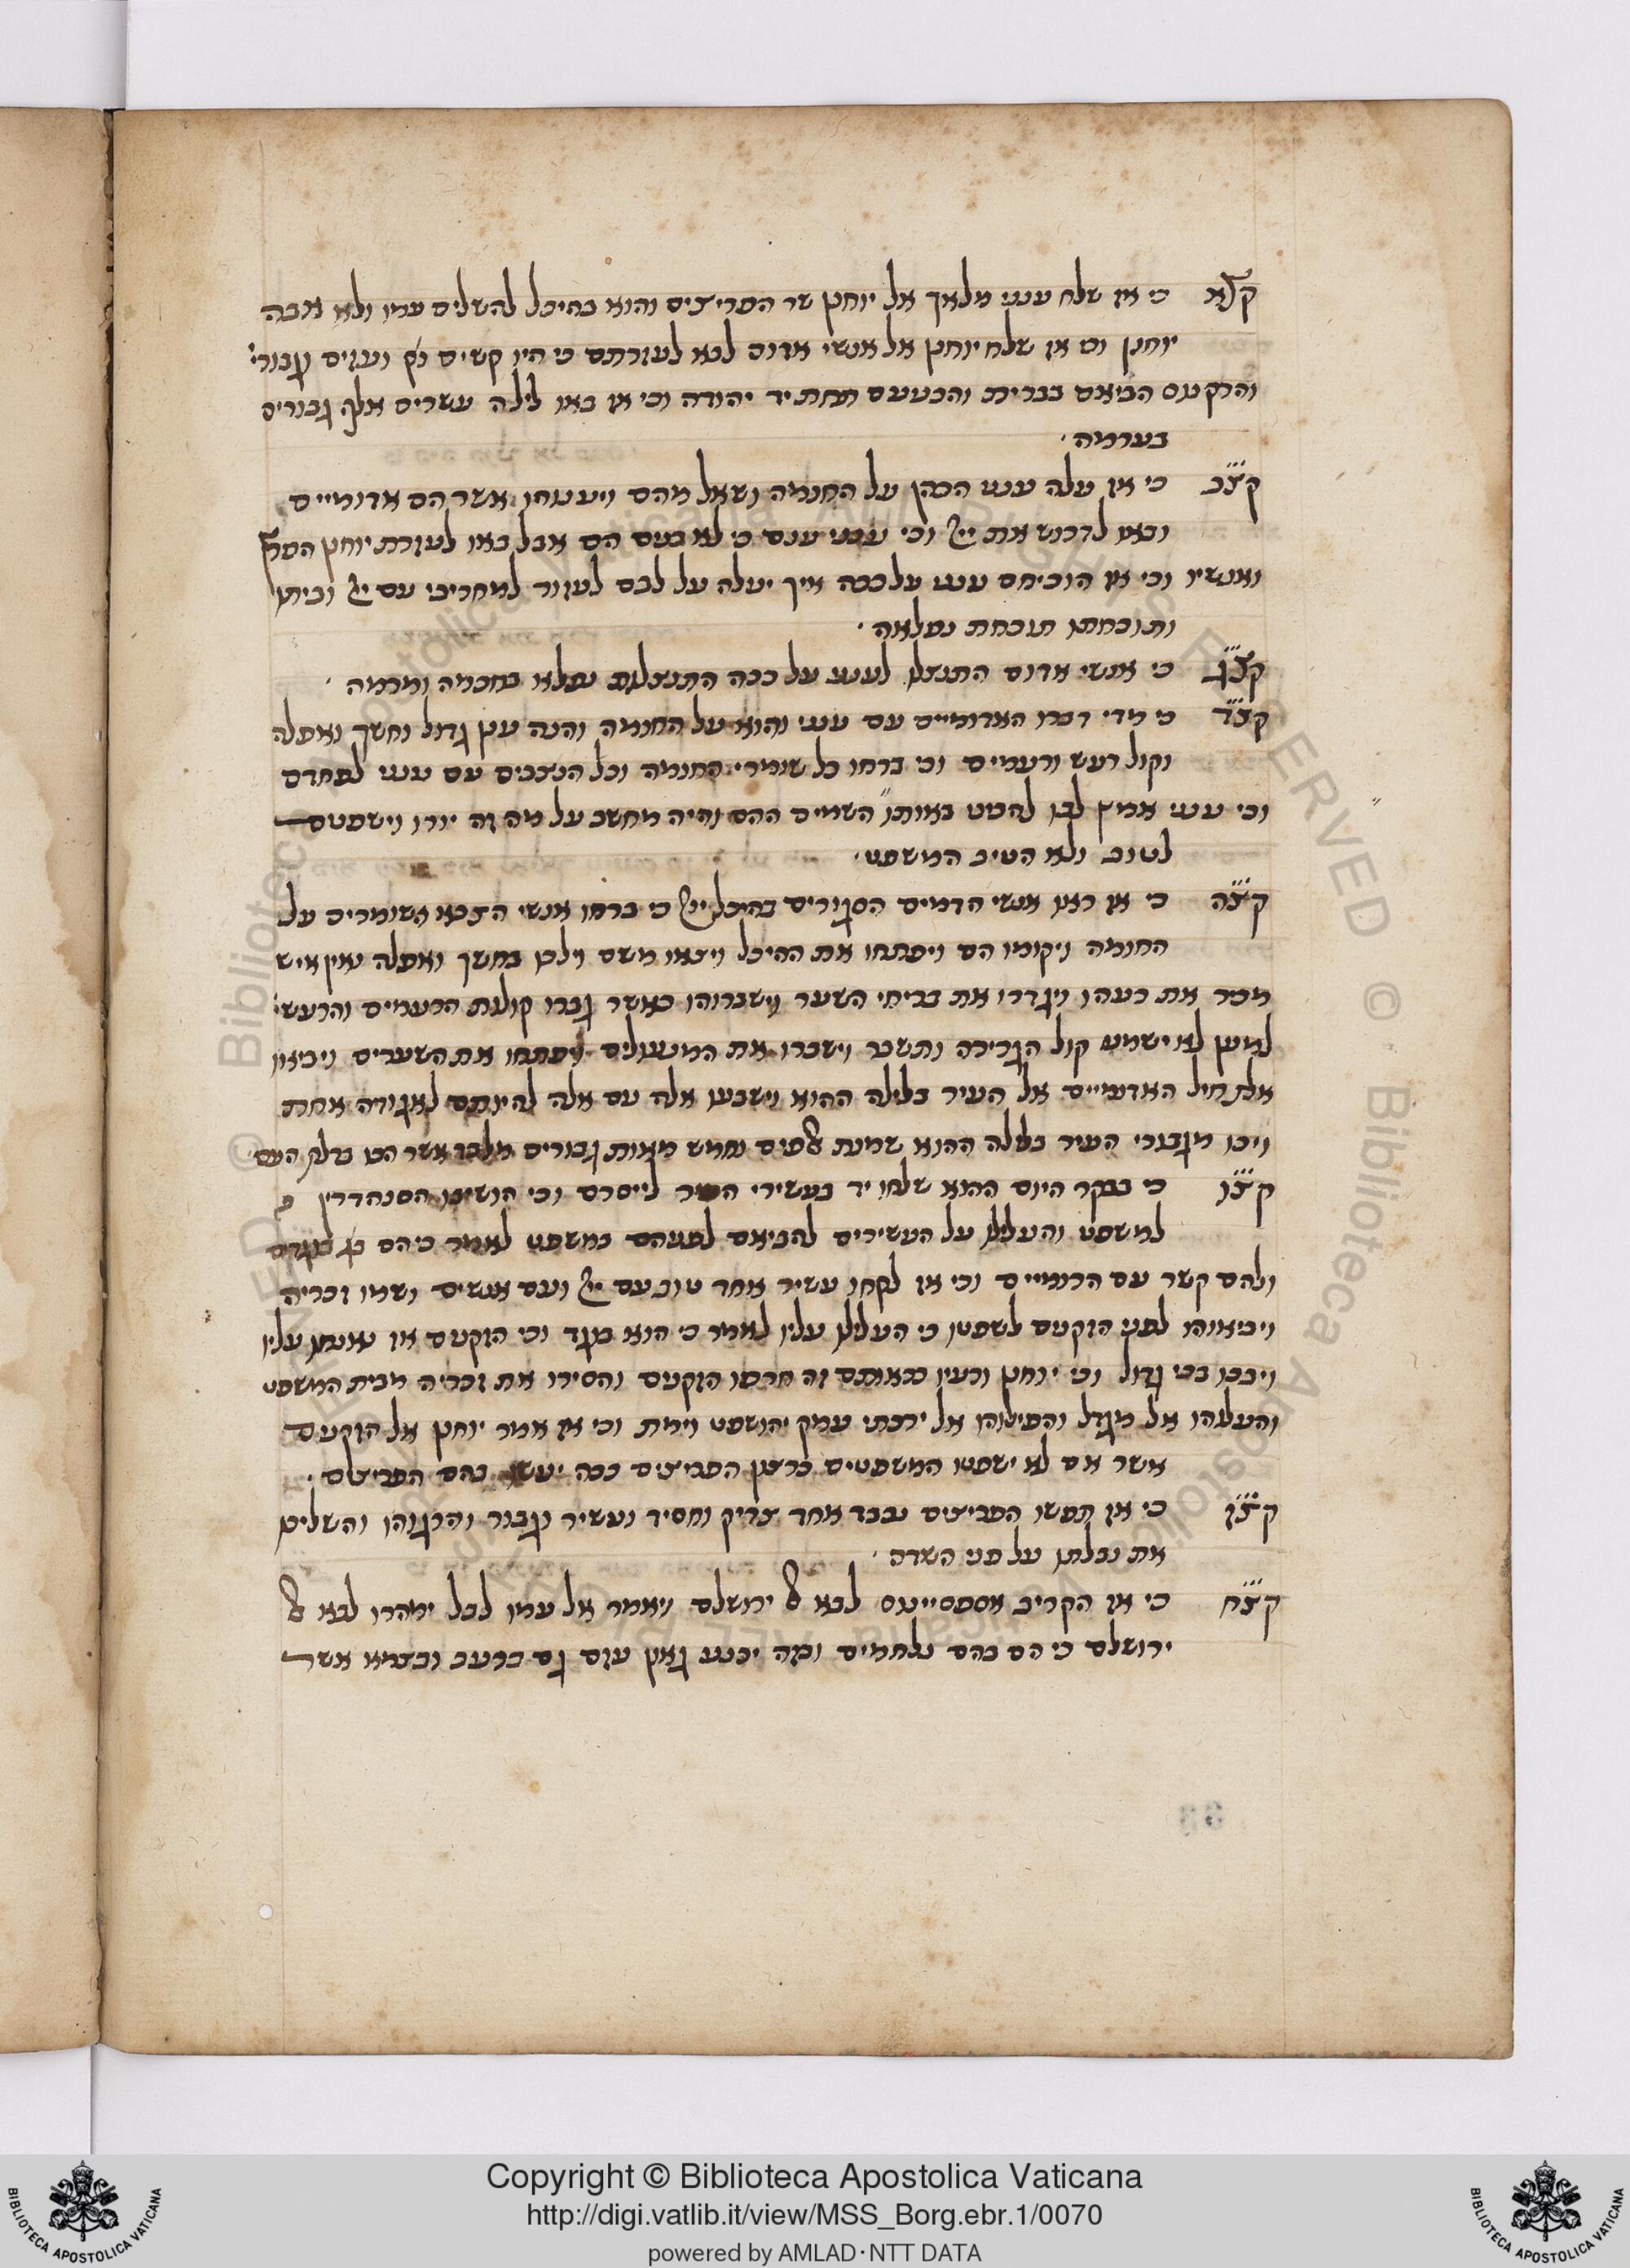 קצ̈א כי אז שלח ענני מלאך אל יוחנן שר הפריצים והוא בהיכל להשלים עמו ולא אבה
יוחנן וכי אז שלח יוחנן אל אנשי אדום לבא לעזרתם כי היו קשים ועזים וגבורי׳
והרקנוס הביאם בברית והכניעם תחת יד יהודה וכי אז באו לילה עשרים אלף גבורים
בערמה ׳
קצ̈ב כי אז עלה ענני הכהן על החומה ושאל מהם ויענוהו אשר הם אדומיים
ובאו לדרוש את ייי וכי ענני ענם כי לא כנים הם אבל באו לעזרת יוחנן הפריץ
ואנשיו וכי אז הוכיחם ענני על ככה איך יעלה על לבם לעזור למחריבי עם ייי וביתו
ותוכחתו תוכחת נפלאה ׳
קצ̈ג כי אנשי אדום התנצלו לענני על ככה התנצלות נפלא בחכמה ומרמה ׳
קצ̈ד כי מדי דברו האדומיים עם ענני והוא על החומה והנה ענן גדול וחשך ואפלה
וקול רעש ורעמים וכי ברחו כל שומרי החומה וכל הנצבים עם ענני לפחדם
וכי ענני אמץ לבו להביט באותו השמים ההם והיה מחשב על מה זה יורו וישפטם
לטוב ולא הטיב המשפט ׳
קצ̈ה כי אז ראו אנשי הדמים הסגורים בהיכל ייי כי ברחו אנשי הצבא השומרים על
החומה ויקומו הם ויפתחו את ההיכל ויצאו משם וילכו בחשך ואפלה ואין איש
מכיר את רעהו ויגררו את בריחי השער וישברוהו כאשר גברו קולות הרעמים והרעש׳
למען לא ישמע קול הגרירה ותשבר וישברו את המנעולים ויפתחו את השערים ויביאו
את חיל האדומיים אל העיר בלילה ההוא וישבעו אלה עם אלה להיותם לאגודה אחת
ויכו מגבורי העיר בלילה ההוא שמנת אלפים וחמש מאות גבורים מלבד אשר הכו בדלת העם
קצ̈ו כי בבקר היום ההוא שלחו יד בעשירי העיר לייסרם וכי הושיבו הסנהדרין
למשפט והעלילו על העשירים להביאם לפניהם במשפט לאמר כי הם
ולהם קשר עם הרומיים וכי אז לקחו עשיר אחד טוב עם ייי ועם אנשים ושמו זכריה
ויביאוהו לפני הזקנים לשפטו כי העלילו עליו לאמר כי הוא בוגד וכי הזקנים אז עליו
ויבכו בכי גדול וכי יוחנן ורעיו כראותם זה חרפו הזקנים והסירו את זכריה מבית המשפט
והעלוהו אל מגדל והפילוהו אל ירכתי עמק יהושפט וימת וכי אז אמר יוחנן אל הזקנים
אשר אם לא ישפטו המשפטים כרצון הפריצים ככה יעשו בהם הפריצים ׳
קצ̈ז כי אז תפשו הפריצים נכבד אחד צדיק וחסיד ועשיר וגבור והרגוהו והשליכו
את נבלתו על פני השדה ׳
קצ̈ח כי אז הקריב אספסיינוס לבא אל ירושלם ויאמר אל עמו לבל ימהרו לבא אל
ירושלם כי הם בהם נלחמים ובזה יכנע גאון עזם גם ברעב ובצמא אשר
Copyright © Biblioteca Apostolica Vaticana
http://digi.vatlib.it/view/MSS_Borg.ebr.1/0070
powered by AMLAD·NTT DATA